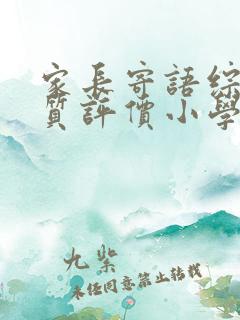 家長寄語綜
質評價小學
九紫
未经同意禁止转载